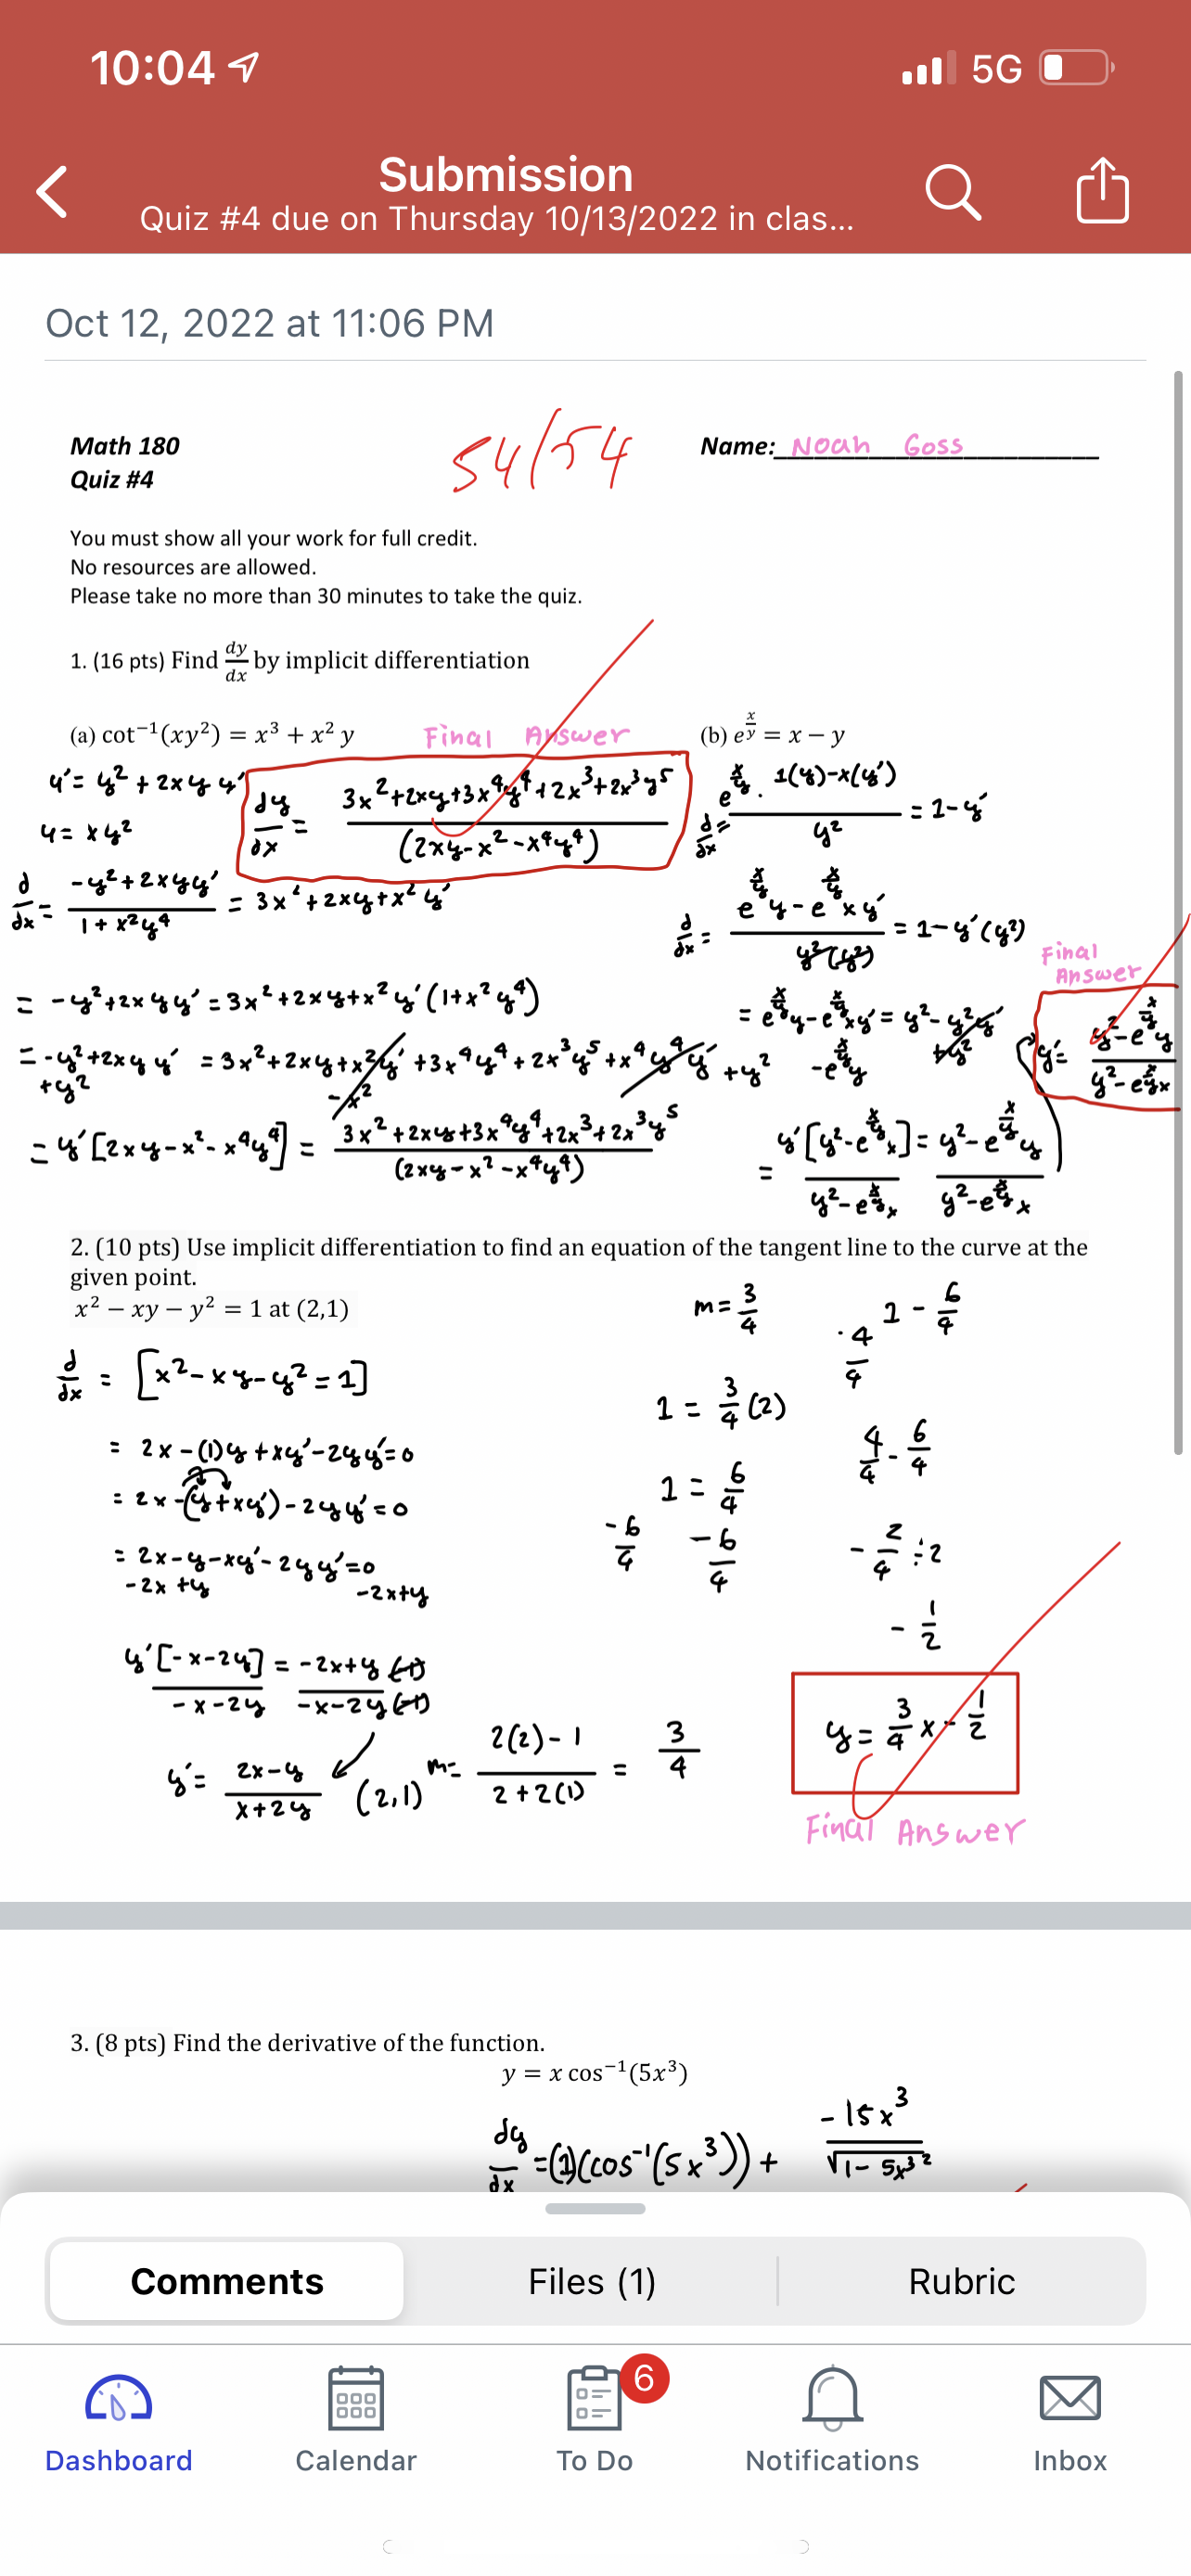 10:04
5G
Submission
Quiz #4 due on Thursday 10/13/2022 in clas...
Oct 12, 2022 at 11:06 PM
Math 180
Quiz #4
54/54
Name: Noah Goss
You must show all your work for full credit.
No resources are allowed.
Please take no more than 30 minutes to take the quiz.
1. (16 pts) Find dy/dx by implicit differentiation
(a) cot⁻¹(xy²) = x³ + x² y
Final Answer
u' = y² + 2xy y'
u = xy²
dy/dx = (3x²+2xy+3x⁴y⁴+2x³+2x³y⁵)/(2xy-x²-x⁴y⁴)
d/dx = (-y²+2xyy')/(1+x²y⁴) = 3x²+2xy+x²y'
= -y²+2xyy' = 3x²+2xy+x²y'(1+x²y⁴)
= -y²+2xyy' = 3x²+2xy+x²y'+3x⁴y⁴+2x³y⁵+x⁴y⁴y' +y²
+y² -x²
= y'[2xy-x²-x⁴y⁴] = (3x²+2xy+3x⁴y⁴+2x³+2x³y⁵)/(2xy-x²-x⁴y⁴)
(b) e^(x/y) = x − y
d/dx = e^(x/y) · (1(y)-x(y'))/y² = 1-y'
d/dx = (e^(x/y)y-e^(x/y)xy')/(y²(y²)) = 1-y'(y²)
= e^(x/y)y-e^(x/y)xy' = y²-y²y'
-e^(x/y)y +y²
Final
Answer
y' = (y²-e^(x/y)y)/(y²-e^(x/y)x)
= y'[y²-e^(x/y)x]/(y²-e^(x/y)x) = (y²-e^(x/y)y)/(y²-e^(x/y)x)
2. (10 pts) Use implicit differentiation to find an equation of the tangent line to the curve at the
given point.
x² − xy − y² = 1 at (2,1)
d/dx = [x²-xy-y²=1]
= 2x-(1)y+xy'-2yy'=0
= 2x-(y+xy')-2yy'=0
= 2x-y-xy'-2yy'=0
-2x +y -2x+y
y'[-x-2y]/(-x-2y) = (-2x+y(-1))/(-x-2y(-1))
y' = (2x-y)/(x+2y) (2,1) m= (2(2)-1)/(2+2(1)) = 3/4
m = 3/4
1 = 3/4 (2)
1 = 6/4
-6/4 -6/4
·4/4 1 - 6/4
4/4 - 6/4
-2/4 ÷2
-1/2
y = 3/4 x - 1/2
Final Answer
3. (8 pts) Find the derivative of the function.
y = x cos⁻¹(5x³)
dy/dx =(1)(cos⁻¹(5x³)) + -15x³/√1-5x³²
Comments
Files (1)
Rubric
6
Dashboard
Calendar
To Do
Notifications
Inbox